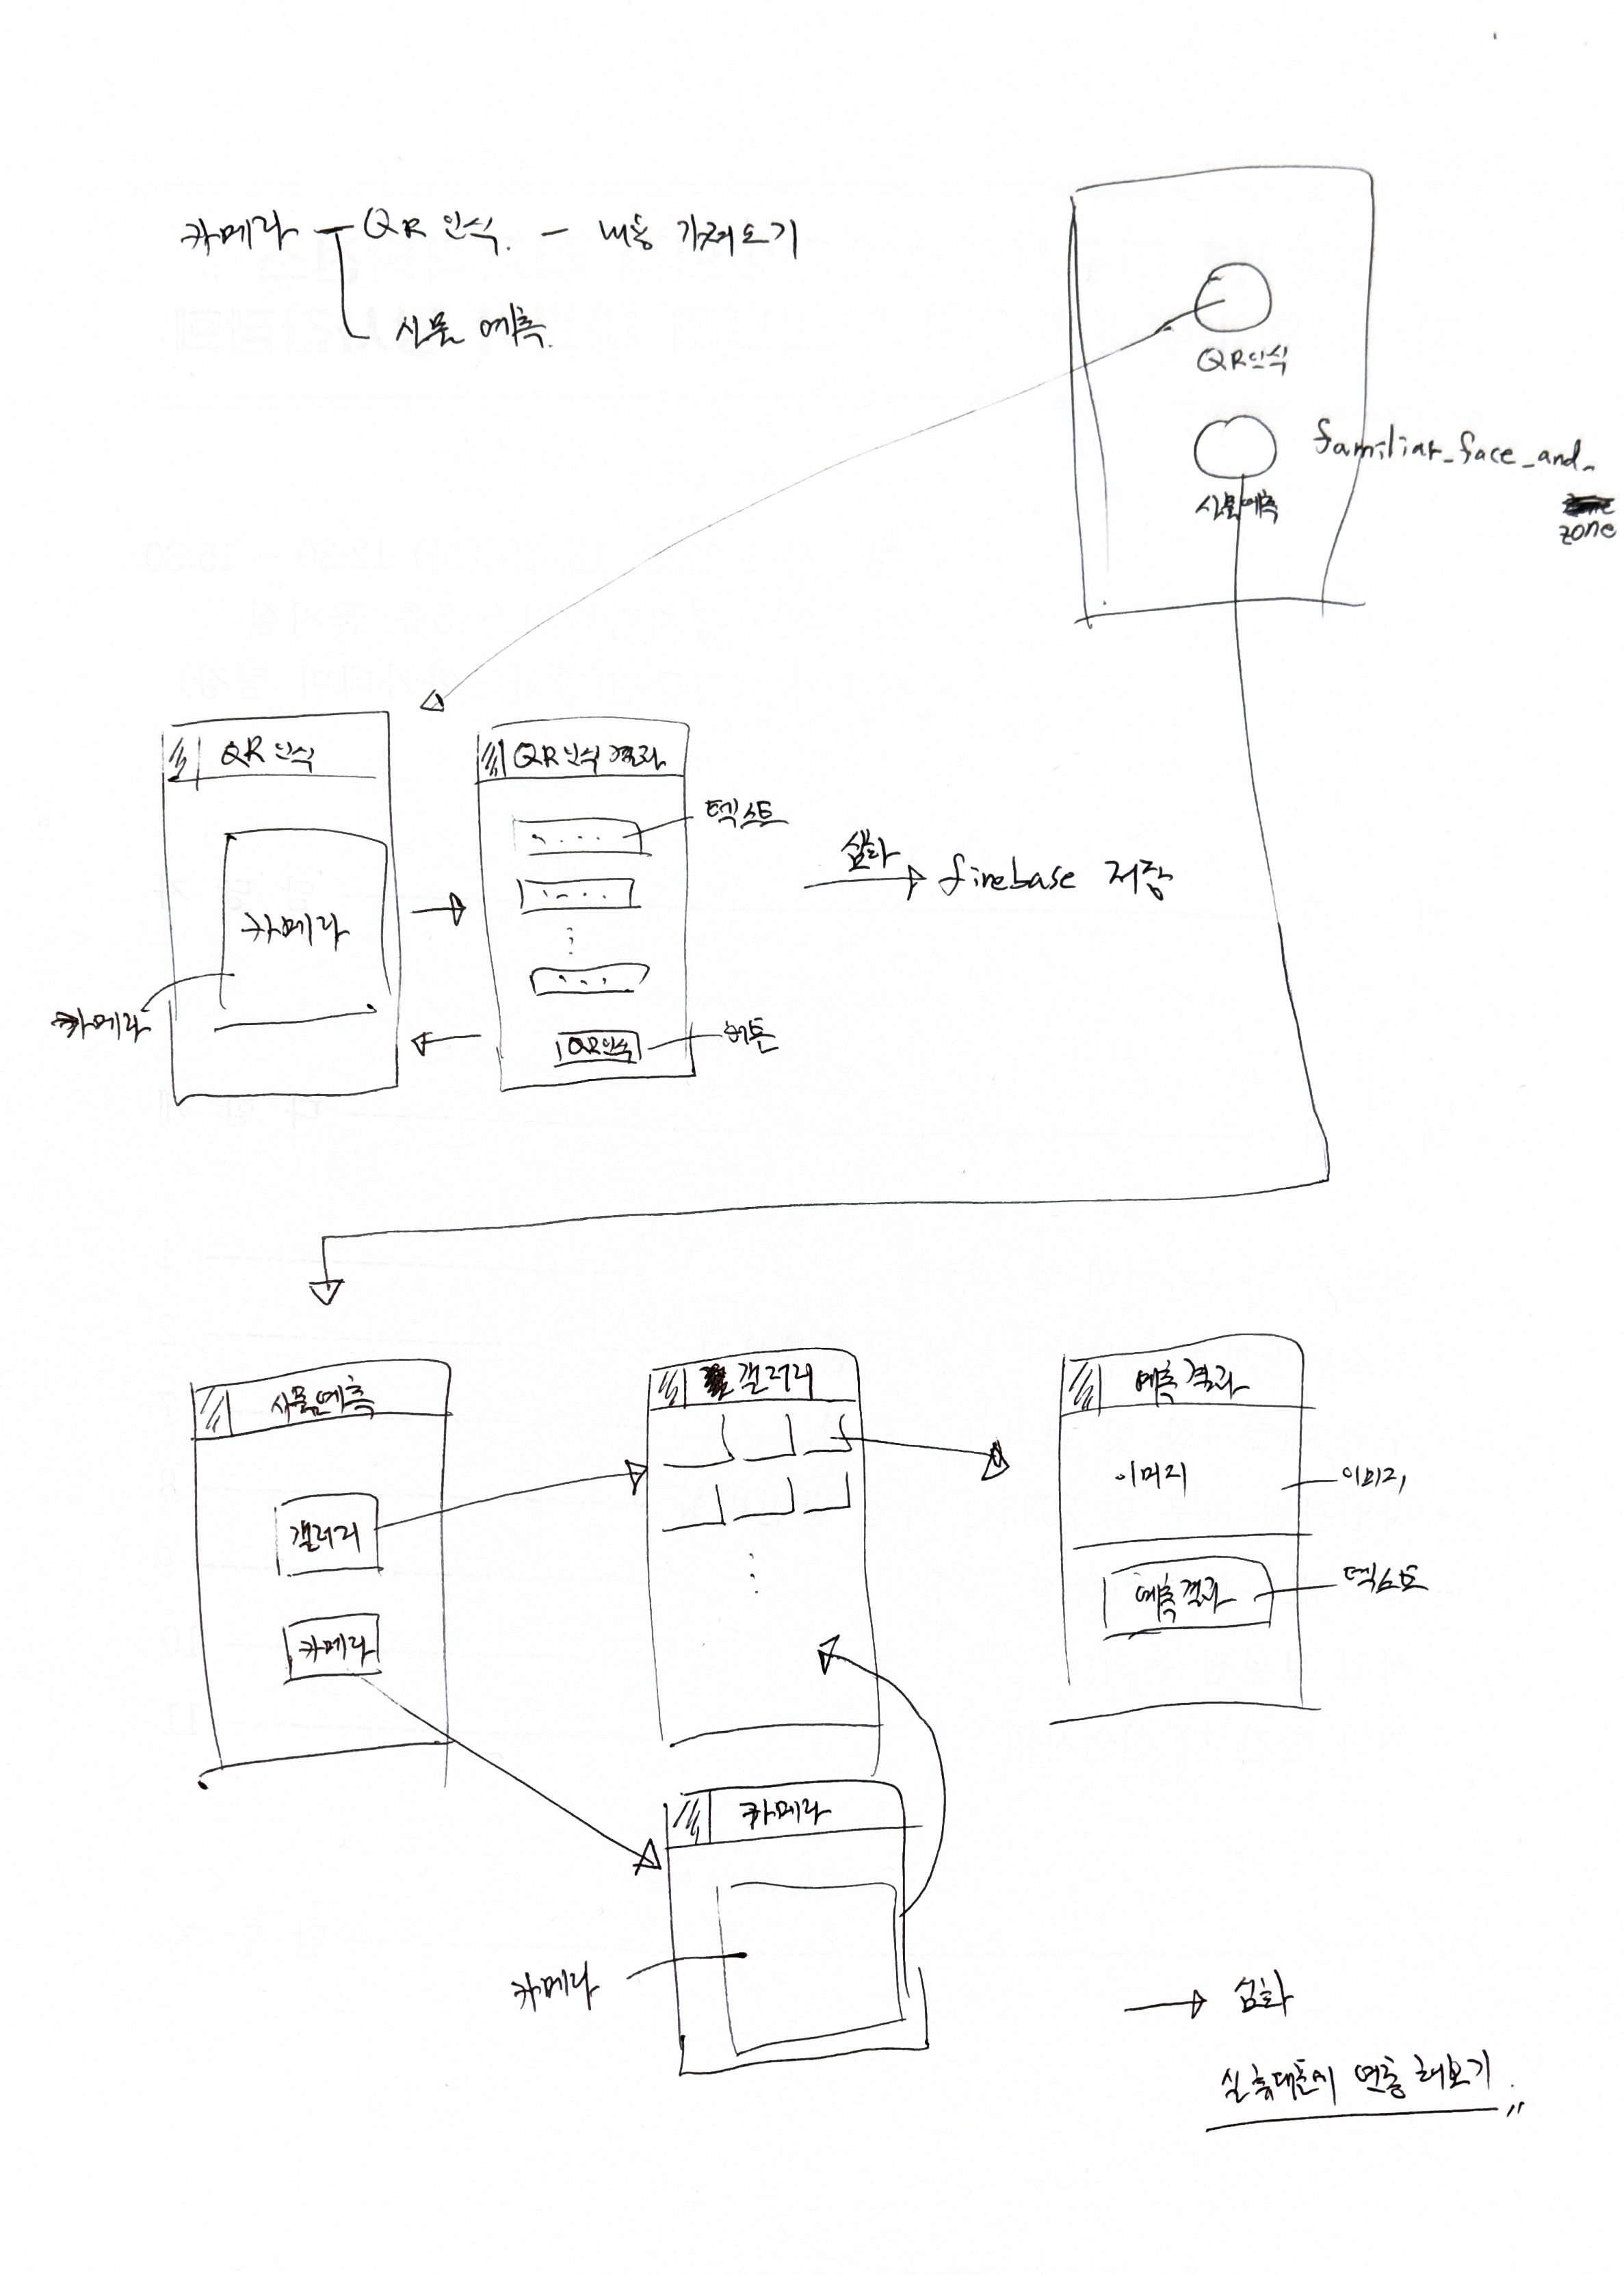 카메라 QR 인식. - 내용 가져오기
사물 예측.
QR인식
familiar_face_and_
zone
사물예측
QR 인식
카메라
카메라
QR 인식 결과
텍스트
QR인식
버튼
심화
firebase 저장
사물예측
갤러리
카메라
갤러리
예측 결과
이미지
이미지
예측 결과
텍스트
카메라
카메라
심화
실 휴대폰에 연동 해보기.